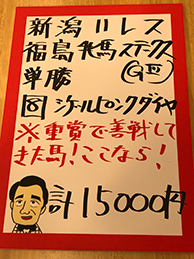 新潟11レス
福島牝馬ステークス
(GⅢ)
単勝
⑧シゲールピンクダイヤ
※重賞で善戦して
きた馬！ここなら！
計15000円